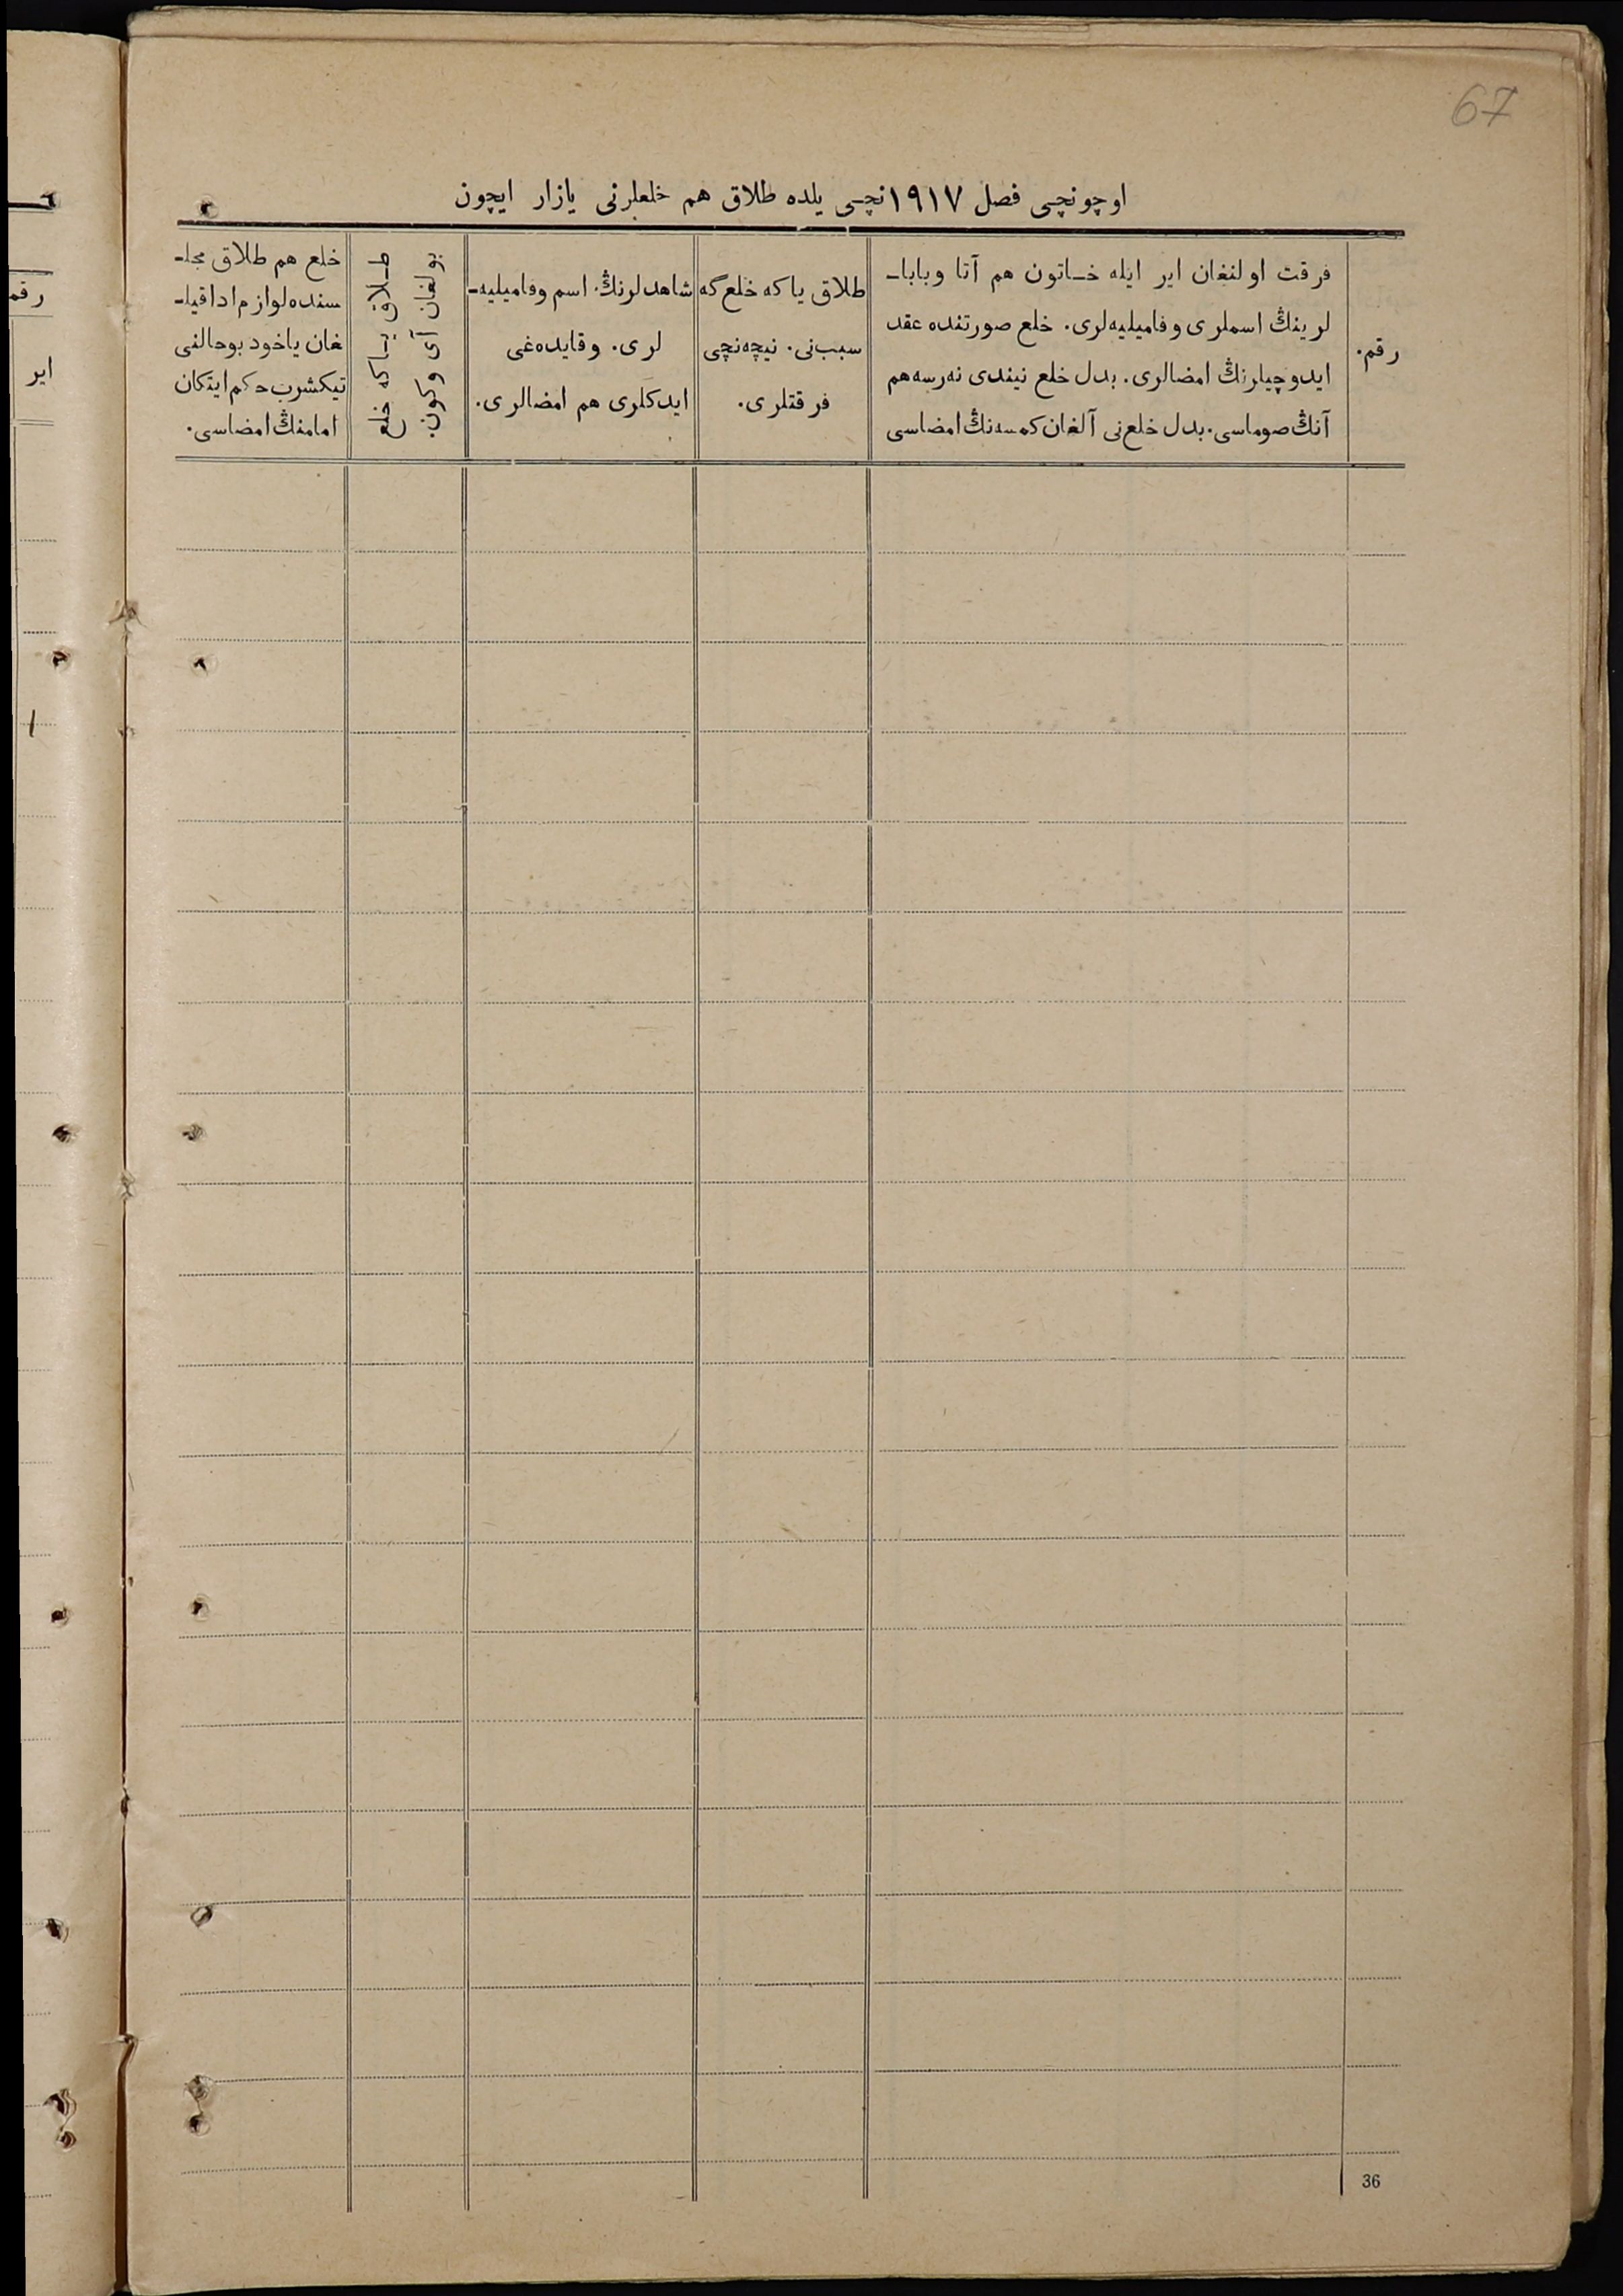 67
اوچونچی فصل ١٩١٧نچی یلده طلاق هم خلعلرنی یازار ایچون
رقم.
فرقت اولنغان ایر ایله خـاتون هم آتا وباباـ
لرینڭ اسملری وفامیلیه‌لری. خلع صورتنده عقد
ایدوچیلرنڭ امضالری. بدل خلع نیندی نەرسه هم
آنڭ صوماسی. بدل خلع‌نی آلغان کمسه‌نڭ امضاسی
طلاق یاکه خلع گه
سبب‌نی. نیچه‌نچی
فرقتلری.
شاهدلرنڭ اسم وفامیلیه‌ـ
لری. وقایده‌غی
ایدکلری هم امضالری.
طـلاق یـاکه خلع
بولغان آی وکون.
خلع هم طلاق مجلـ
سنده لوازم ادا قیلـ
غان یاخود بوحالنی
تیکشرب حکم ایتکان
امامنڭ امضاسی.
رقم
ایر
١
36